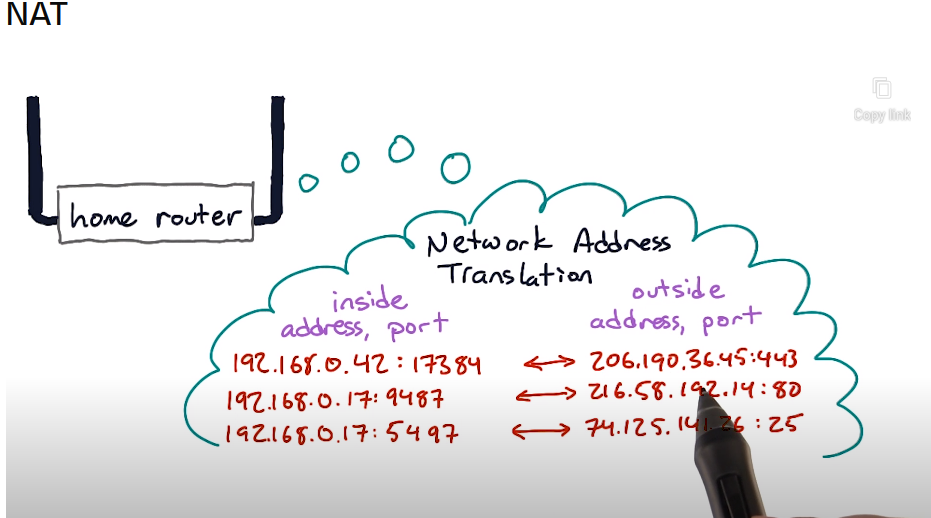 NAT
Copy link
home router
Network Address
Translation
inside
address, port
outside
address, port
192.168.0.42:17384 ↔ 206.190.36.45:443
192.168.0.17:9487 ↔ 216.58.192.14:80
192.168.0.17:5497 ↔ 74.125.141.26:25